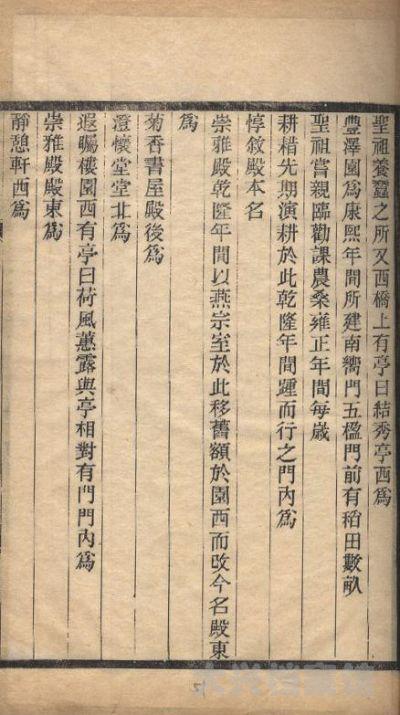 聖祖養蠶之所又西橋上有亭曰結秀亭西爲
豐澤園爲康熙年間所建南嚮門五楹門前有稻田數畝
聖祖嘗親臨勸課農桑雍正年間每歲
耕耤先期演耕於此乾隆年間踵而行之門內爲
惇敘殿本名
崇雅殿乾隆年間以燕宗室於此移舊額於園西而改今名殿東
爲
菊香書屋殿後爲
澄懷堂堂北爲
遐矚樓園西有亭曰荷風蕙露與亭相對有門門內爲
崇雅殿殿東爲
靜憩軒西爲